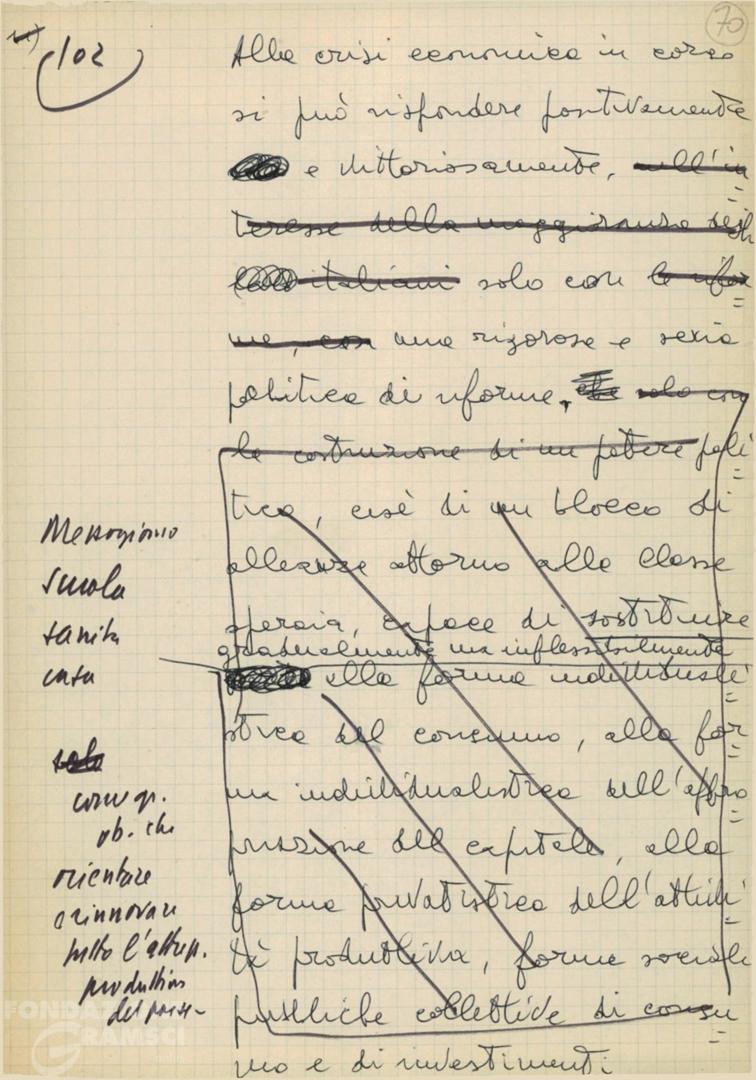 70
102
Alla crisi economica in corso
si può rispondere positivamente
e vittoriosamente, nell'in
teresse della maggioranza degli
italiani solo con le rifor
me, con una rigorosa e seria
politica di riforme, che solo con
la costruzione di un potere poli
tico, cioè di un blocco di
alleanze attorno alla classe
operaia, capace di sostituire
gradualmente ma inflessibilmente
alla forma individuali
stica del consumo, alla for
ma individualistica dell'appro
priazione del capitale, alla
forma privatistica dell'attivi
tà produttiva, forme sociali
pubbliche collettive di consu
mo e di investimenti
Mezzogiorno
Scuola
sanità
casa
solo
come gr.
ob. che
orientare
e rinnovare
tutto l'
produttivo
del paese
FONDAZIONE
GRAMSCI